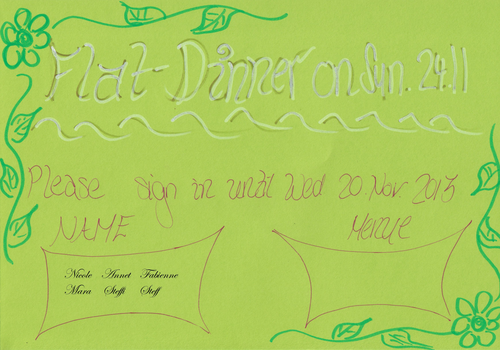 Flat-Dinner on Sun. 24.11
Please sign in until Wed 20. Nov. 2013
NAME
Menue
Nicole Annet Fabienne
Mara Steffi Steff